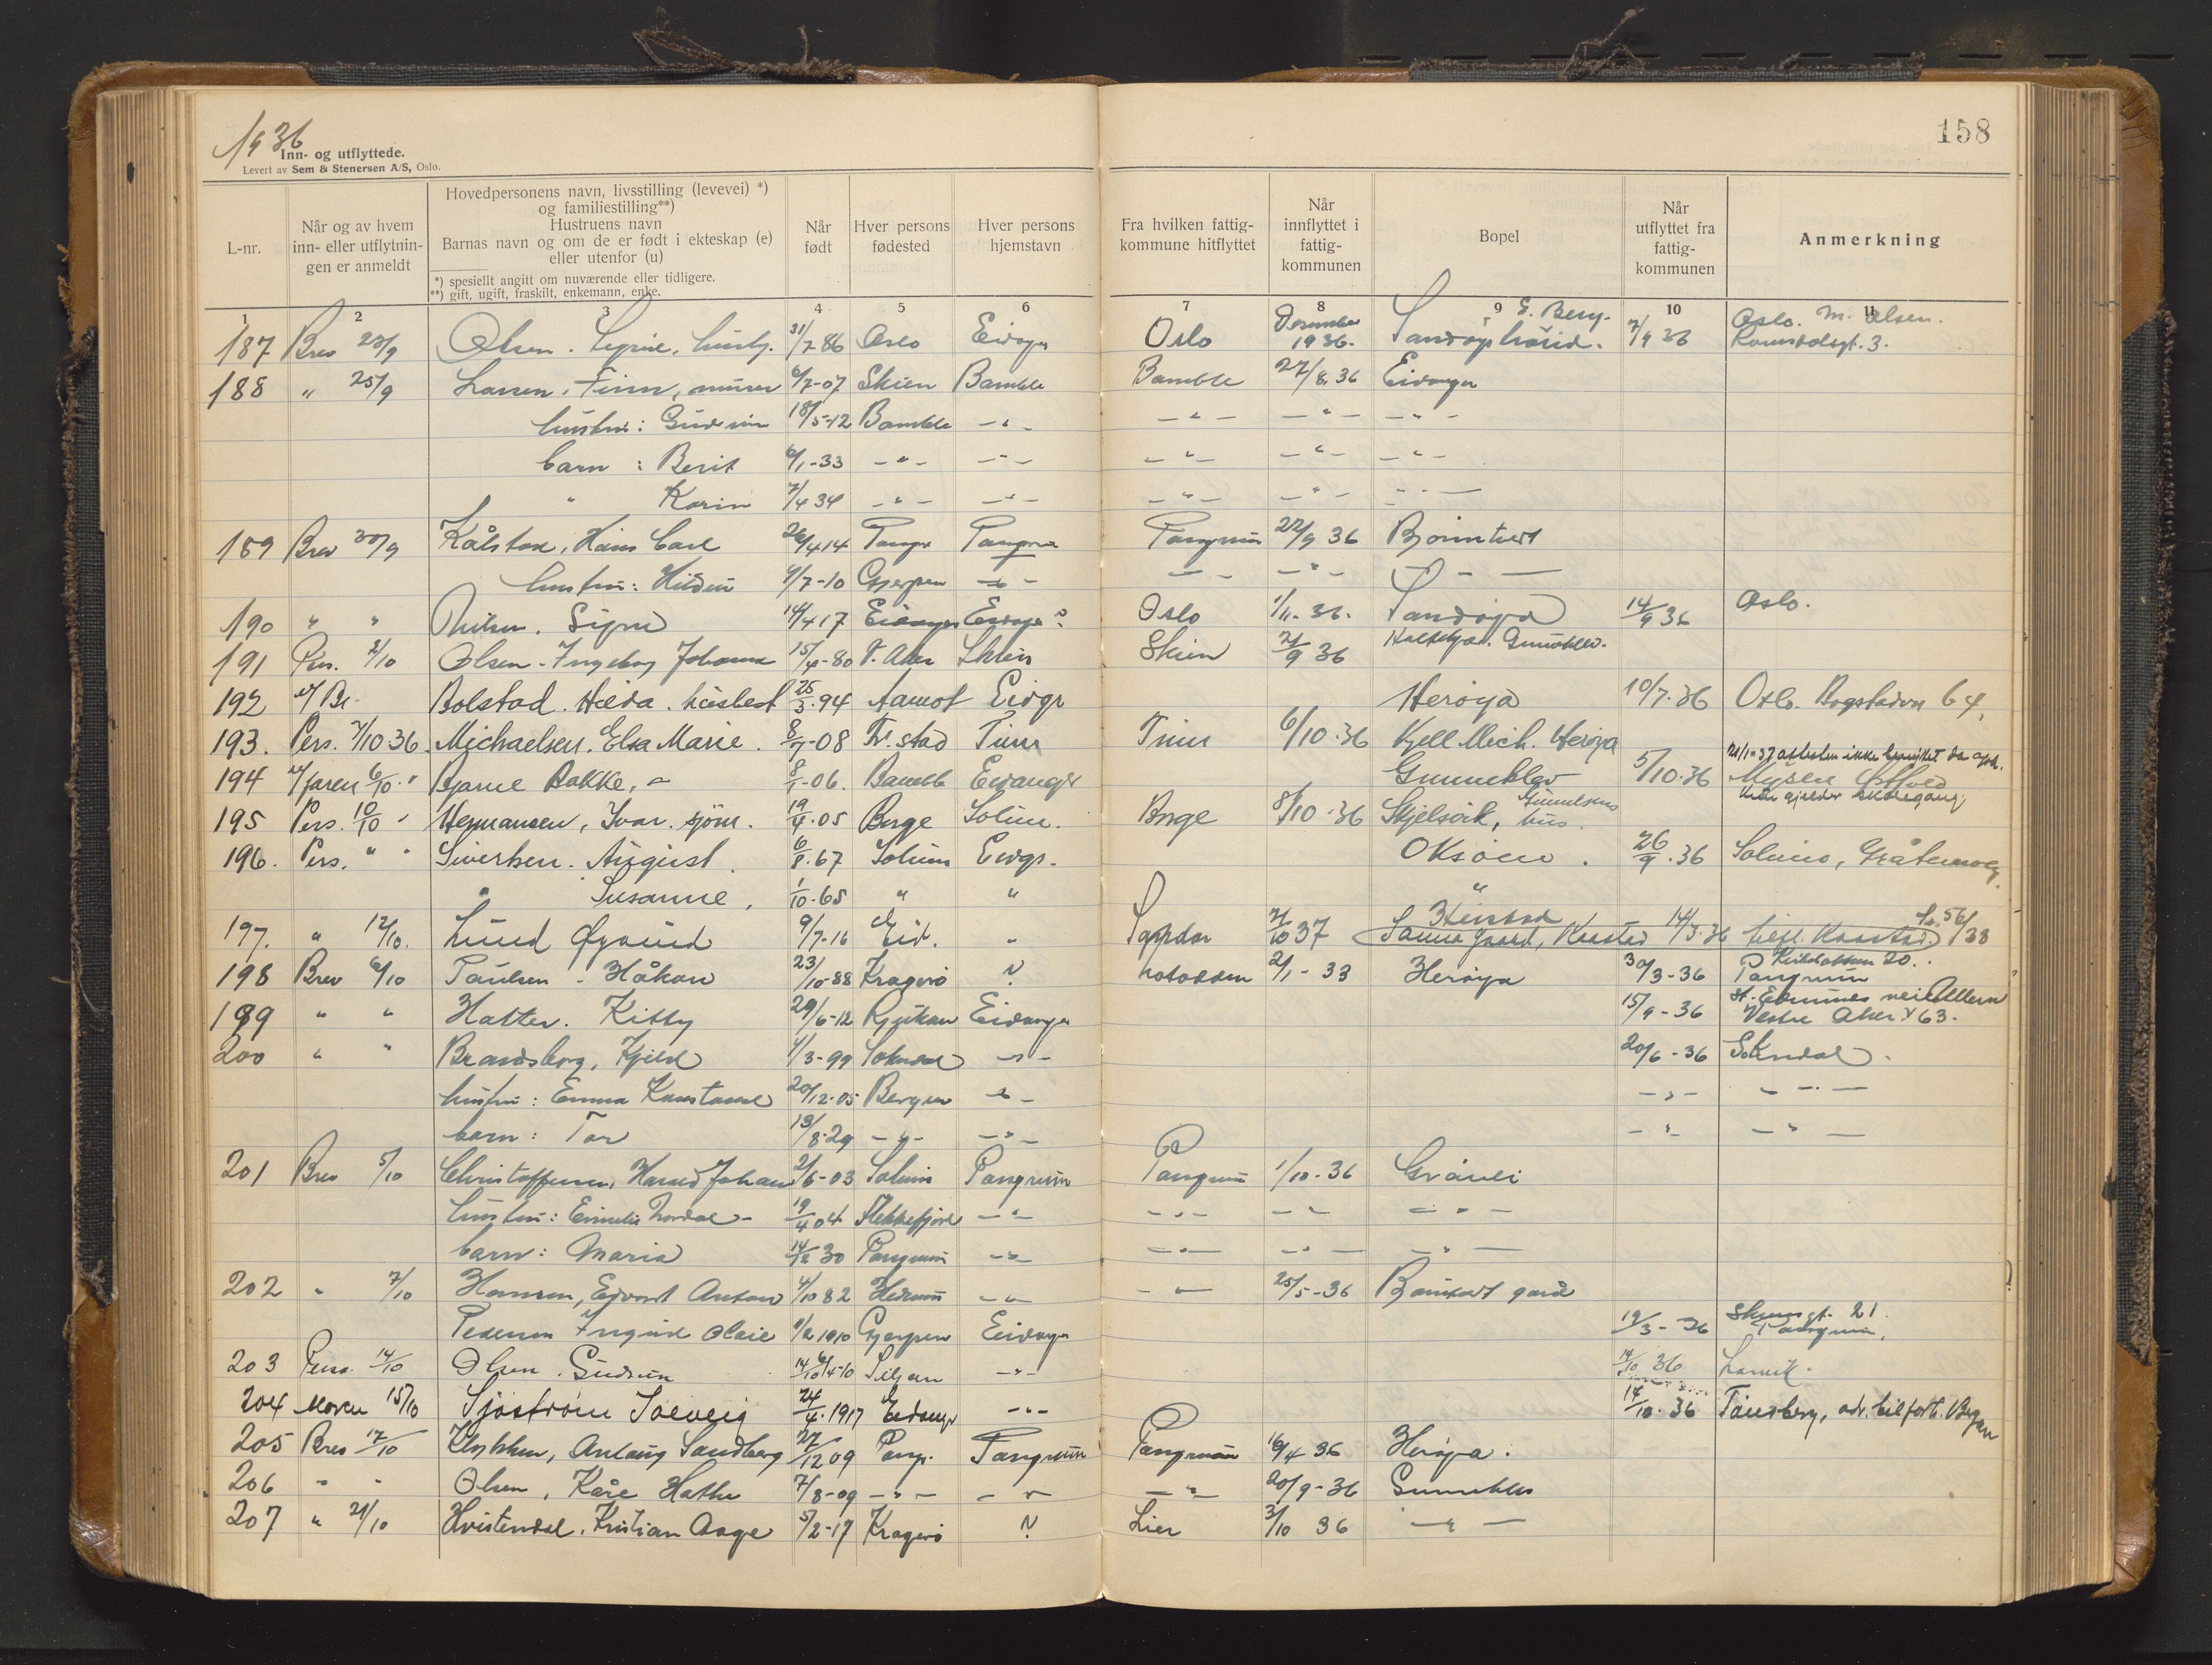 1936
158
Inn- og utflyttede.
Levert av Sem & Stenersen A/S, Oslo.
L-nr.
Når og av hvem inn- eller utflytnin-gen er anmeldt
Hovedpersonens navn, livsstilling (levevei) *)
og familiestilling**)
Hustruens navn
Barnas navn og om de er født i ekteskap (e)
eller utenfor (u)
*) spesiellt angitt om nuværende eller tidligere.
**) gift, ugift, fraskilt, enkemann, enke.
Når født
Hver persons fødested
Hver persons hjemstavn
Fra hvilken fattig-kommune hitflyttet
Når innflyttet i fattig-kommunen
Bopel
Når utflyttet fra fattig-kommunen
Anmerkning
1 2 3 4 5 6 7 8 9 10 11
187 Brev 23/9 Olsen. 31/7 86 Oslo Eidanger Oslo 1936. 7/9 36 Oslo. M. Olsen.
Romsdalsgt. 3.
188 " 25/9 Larsen, Finn, murer 6/7-07 Skien Bamble Bamble 27/8 36 Eidanger
hustru: Gudrun 18/5-12 Bamble -"- -"- -"- -"-
barn: Berit 6/1-33 -"- -"- -"- -"- -"-
" Karin 7/4 34 -"- -"- -"- -"- -"-
189 Brev 30/9 Kålstad, Hans Carl 26/4 14 Porsgr Porsgrun Porsgrunn 22/9 36 Bjørntvet
hustru: 4/7-10 Gjerpen -"- -"- -"- -"-
190 " " Signe 14/4 17 Eidanger Eidanger? Oslo 1/1. 36. Sandøya 14/9 36 Oslo.
191 Pers. 2/10 Olsen - Ingeborg Johanne 15/4-80 V. Aker Skien Skien 21/9 36
192 Bolstad. Hilda. husbest 25/3.94 Aamot Eidgr Herøya 10/7.36 Oslo. Bogstadvn 64,
193. Pers. 7/10 36. Michaelsen. Elsa Marie. 8/7-08 Fr.stad Tinn Tinn 6/10.36 Kjell Mich. Herøya
194 6/10 " Bjarne Bakke, 8/1-06. Bamble Eidanger Gunneklev 5/10.36 Mysen
195 Pers. 10/10 " Hermansen, Ivar. sjøm. 19/4.05 Borge Solum. Borge 8/10.36 Skjelsvik, hus.
196. Pers. " " Sivertsen. August. 6/8.67 Solum Eidgr. Oksøen. 26/9.36 Solum,
" Susanne, 1/10.65 " " "
197. " 12/10. Lund Øyvind 9/7-16 Eid. " 21/10 37
198 Brev 6/10 Paulsen - Håkon 23/10-88 Kragerø ? Notodden 2/1-33 Herøya 30/3-36 Porsgrunn
199 " " Hatter. Kitty 29/6-12 Rjukan Eidanger 15/9-36 Vestre Aker 63.
200 " " Brandsborg, Kjeld 4/3-99 Sokndal -"- 20/6-36 Sokndal.
hustru: Emma Konstanse 20/12-05 Bergen -"- -"- -"-
barn: Tor 13/8-29 -"- -"- -"- -"-
201 Brev 5/10 Christoffersen, Harald Johan 2/6-03 Solum Porsgrunn Porsgrunn 1/10-36 Gråvei
hustru: 19/4 04 Flekkefjord -"- -"- -"- -"-
barn: Maria 14/2 30 Porsgrunn -"- -"- -"- -"-
202 " 7/10 Hansen, Edvart Anton 4/10 82 Hedrum -"- -"- 25/5-36 Bjørntvet gård
Pedersen Ingrid Olaie 1/2 1910 Gjerpen Eidanger 19/3-36 21.
Porsgrunn.
203 Pers. 14/10 Olsen. Gudrun Siljan -"- 14/10 36. Larvik.
204 Moren 15/10 Sjøstrøm Solveig 24/4.1917 Eidanger -"- 14/10.36 Tønsberg, adr. Bergan
205 Brev 17/10 Klykken, Antony Sandberg 27/12 09 Porsgr. Porsgrunn Porsgrunn 16/4 36 Herøya.
206 " " Olsen, Kåre 7/8-09 -"- -"- -"- 20/9-36 Gunneklev
207 " 21/10 Hvistendal, Kristian Aage 5/2-17 Kragerø ? Lier 3/10 36 -"-